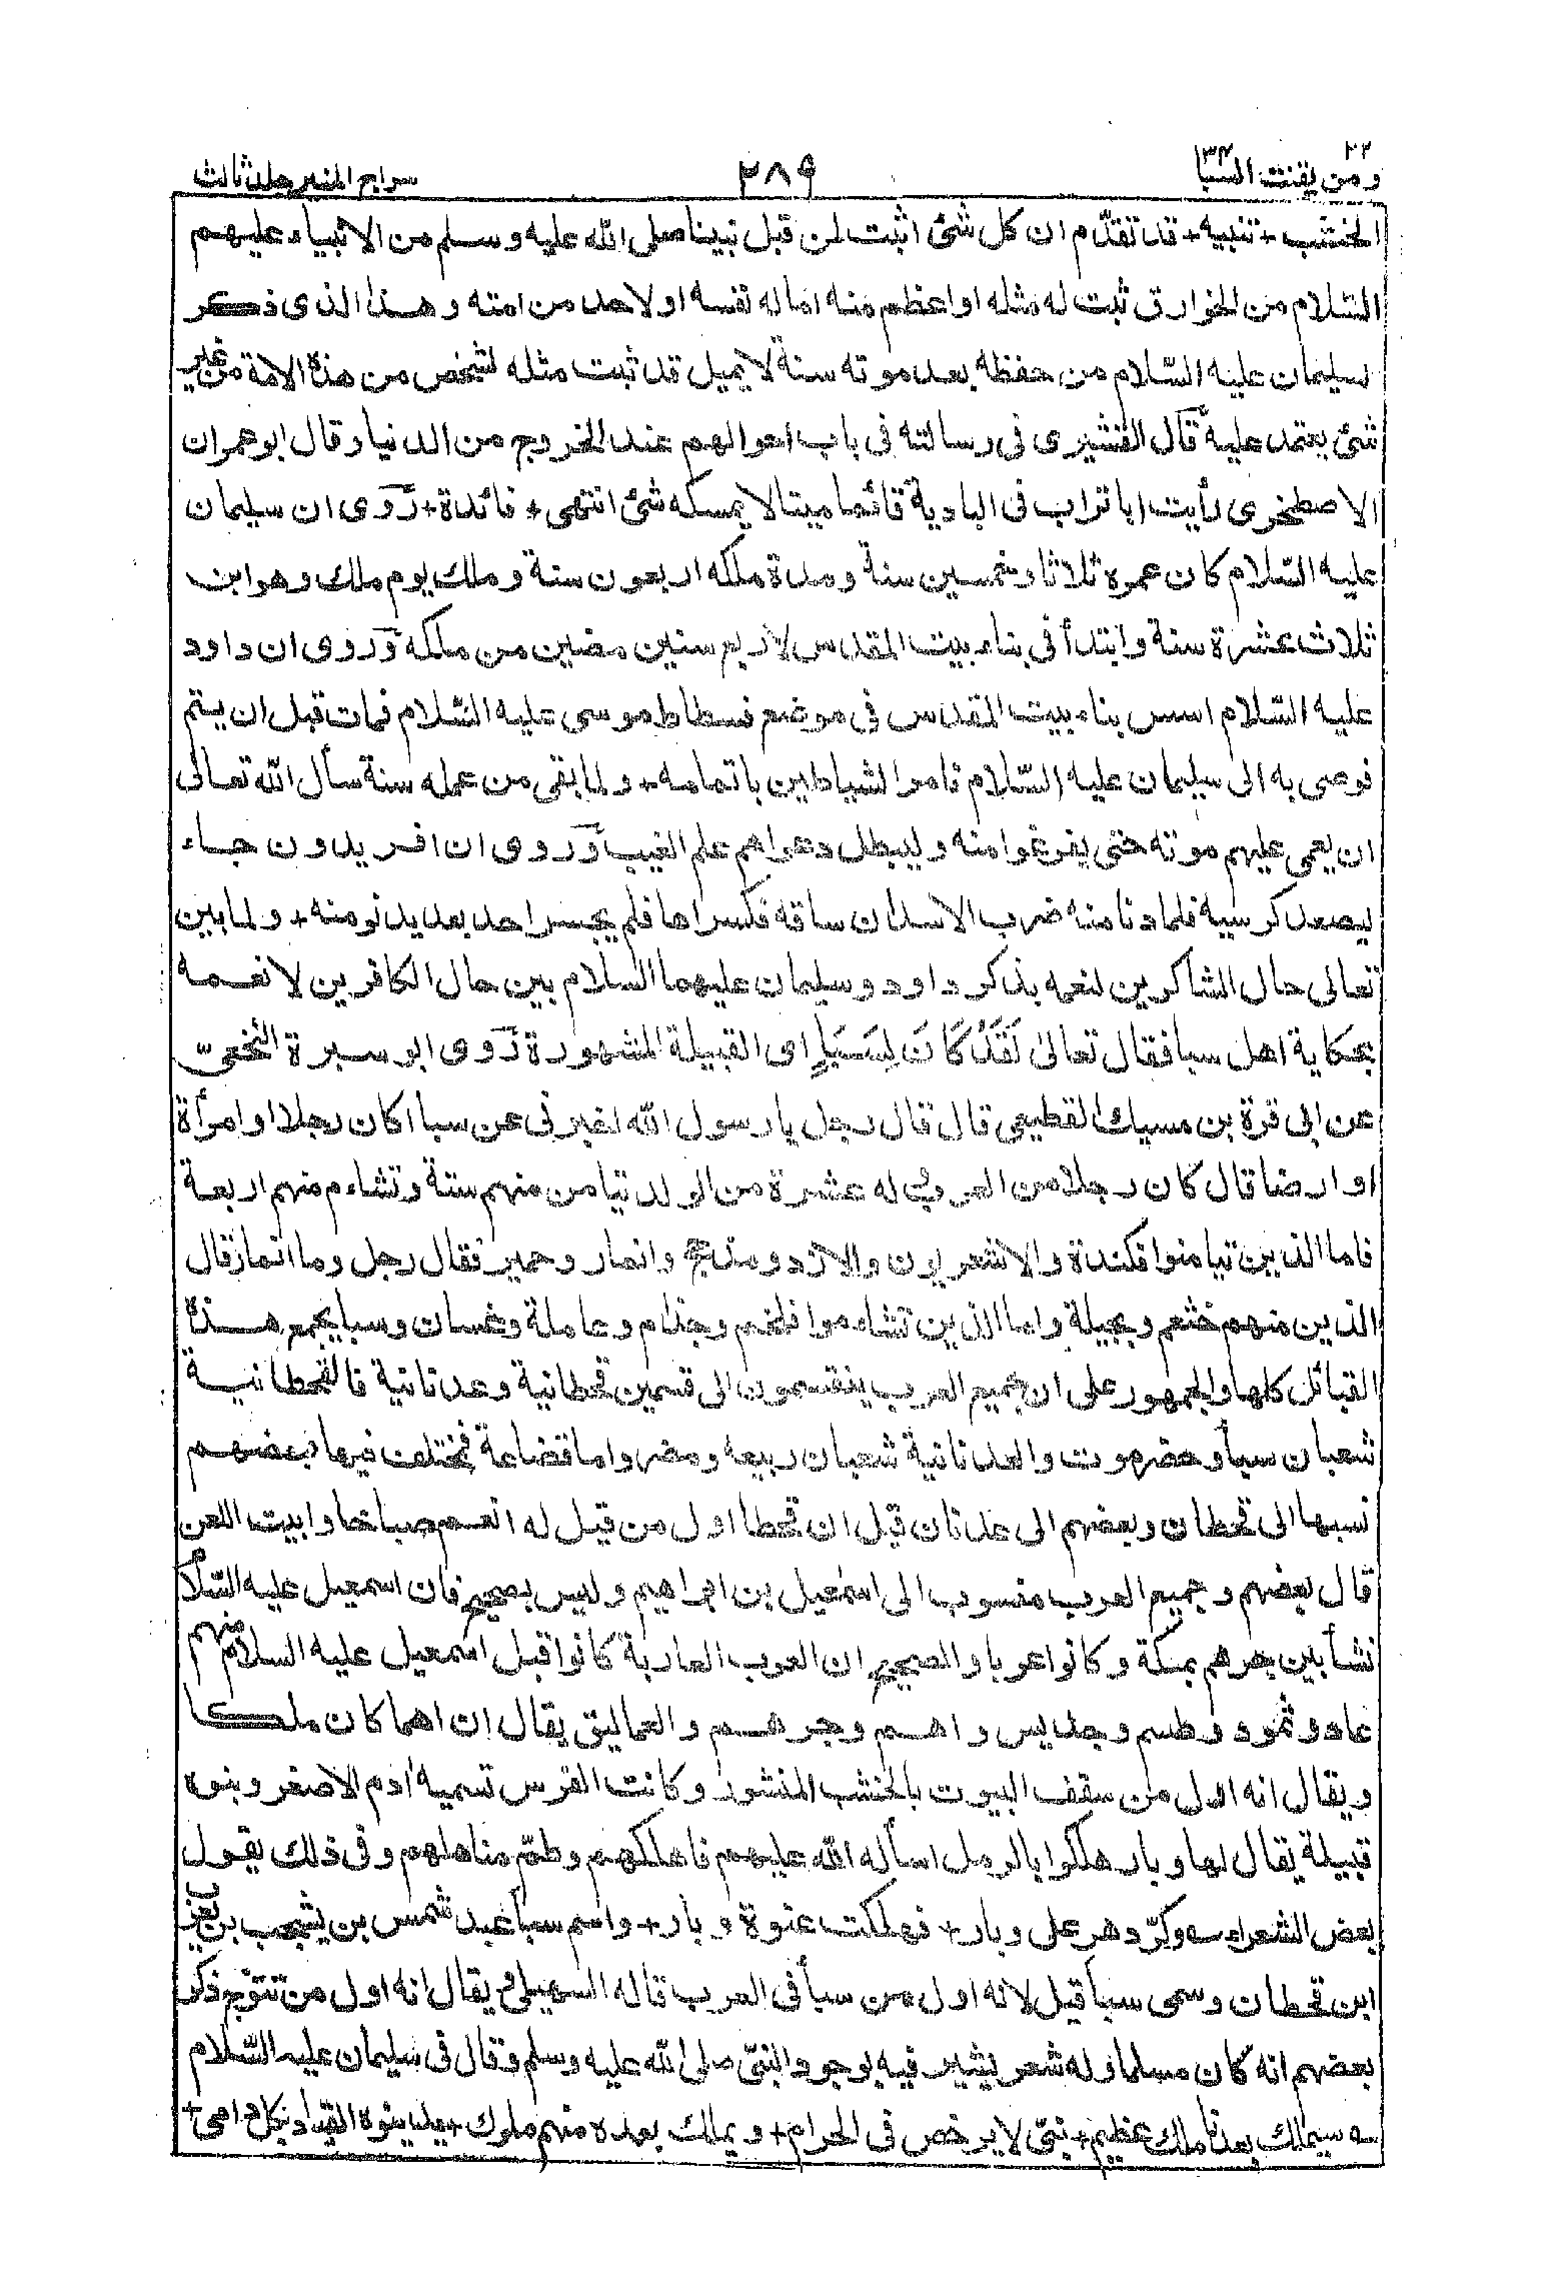 ٢٢
ومن يقنت السبا ٣٤
٢٨٩
سراج المنير جلد ثالث
الخشب + تنبيه + قد تقدّم ان كل شئ اثبت لمن قبل نبينا صلى الله عليه وسلم من الانبياء عليهم
السّلام من الخوارق ثبت له مثله او اعظم منه اما له نفسه او لاحد من امته وهذا الذى ذكر
لسليمان عليه السّلام من حفظه بعد موته سنة لا يميل قد ثبت مثله لشخص من هذه الامة من غير
شئ يعتمد عليه قال القشيرى فى رسالته فى باب احوالهم عند الخروج من الدنيا وقال ابو عمران
الاصطخرى رأيت ابا تراب فى البادية قائما ميتا لا يمسكه شئ انتهى + فائدة + روى ان سليمان
عليه السّلام كان عمره ثلاثا وخمسين سنة ومدة ملكه اربعون سنة وملك يوم ملك وهو ابن
ثلاث عشرة سنة وابتدأ فى بناء بيت المقدس لاربع سنين مضين من ملكه وروى ان داود
عليه السّلام اسس بناء بيت المقدس فى موضع فسطاط موسى عليه السّلام فمات قبل ان يتم
فوصى به الى سليمان عليه السّلام فامر الشياطين باتمامه + ولما بقى من عمله سنة سأل الله تعالى
ان يعمى عليهم موته حتى يفرغوا منه وليبطل دعواهم علم الغيب وروى ان افريدون جاء
ليصعد كرسيه فلما دنا منه ضرب الاسدان ساقه فكسراها فلم يجسر احد بعد يدنو منه + ولما بين
تعالى حال الشاكرين لنعمه بذكر داود وسليمان عليهما السلام بين حال الكافرين لانعمه
بحكاية اهل سبا فقال تعالىٰ لَقَدْ كَانَ لِسَبَإٍ اى القبيلة المشهورة روى ابو سبرة النخعىّ
عن ابى قرة بن مسيك القطيعى قال قال رجل يا رسول الله اخبرنى عن سبا اكان رجلا او امرأة
او ارضا قال كان رجلا من العرب وله عشرة من الولد تيامن منهم ستة وتشاءم منهم اربعة
فاما الذين تيامنوا فكندة والاشعريون والازد ومذحج وانمار وحمير فقال رجل وما انمار قال
الذين منهم خثعم وبجيلة واما الذين تشاءموا فلخم وجذام وعاملة وغسان وسبا يجمع هذه
القبائل كلها والجمهور على ان جميع العرب ينقسمون الى قسمين قحطانية وعدنانية فالقحطانية
شعبان سبأ وحضرموت والعدنانية شعبان ربيعه ومضر واما قضاعة فمختلف فيها بعضهم
نسبها الى قحطان وبعضهم الى عدنان قيل ان قحطا اول من قيل له انعم صباحا وابيت اللعن
قال بعضهم وجميع العرب منسوب الى اسمٰعيل بن ابراهيم وليس بصحيح فان اسمعيل عليه السّلام
نشأ بين جرهم بمكة وكانوا عربا والصحيح ان العرب العاربة كانوا قبل اسمعيل عليه السلام منهم
عاد وثمود وطسم وجديس واهم وجرهم والعماليق يقال ان اهما كان ملكا
ويقال انه اول من سقف البيوت بالخشب المنشور وكانت الفرس تسميه اٰدم الاصغر وبنوه
قبيلة يقال لها وبار هلكوا بالرمل اساله الله عليهم فاهلكهم وطمّ مناهلهم وفى ذلك يقول
بعض الشعراء ؎ وكرّ دهر على وبار + فهلكت عنوة وبار + واسم سبأ عبد شمس بن يشجب بن يعرب
ابن قحطان وسمى سبأ قيل لانه اول من سبأ فى العرب قاله السهيلى ويقال انه اول من تتوّج ذكر
بعضهم انه كان مسلما وله شعر يشير فيه بوجود النبىّ صلى الله عليه وسلم وقال فى سليمان عليه السّلام
؎ سيملك بعدنا ملك عظيم + نبىّ لا يرخص فى الحرام + ويملك بعده منهم ملوك +